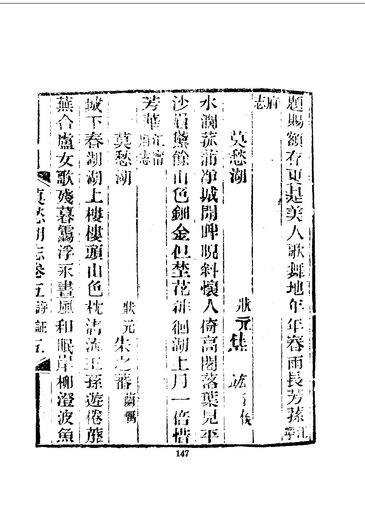 題賜額存更是美人歌舞地年年春雨長芳孫江寧
府志
莫愁湖 狀元焦竑侯
水濶菰蒲淨城開睥睨斜懷人倚高閣落葉見平
沙眉黛餘山色鈿金但埜花徘徊湖上月一倍惜
芳華江甯府志
莫愁湖 狀元朱之蕃蘭嵎
城下春湖湖上樓樓頭山色枕清流王孫遊倦蘼
蕪合盧女歌殘暮靄浮永晝風和眠岸柳澄波魚
莫愁湖志卷五詩証 五
147